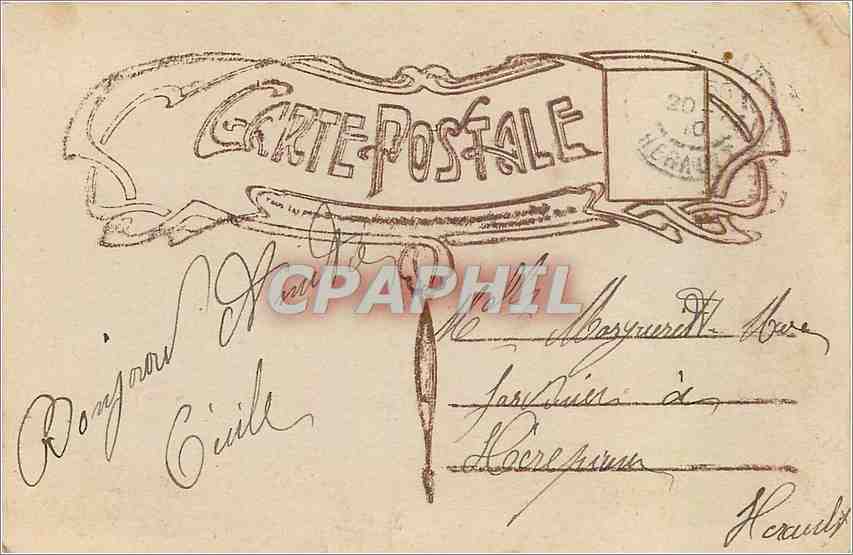 CARTE POSTALE
20
10
HERAULT
Bonjour d'Amitiés
Cécile
CPAPHIL
Mlle Marguerite Mare
Jardinier à
Hérépian
Herault